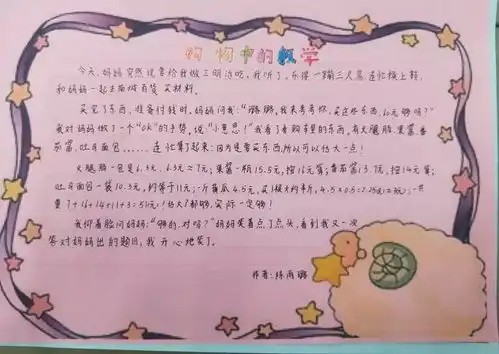 购物中的数学
今天,妈妈突然说要给我做三明治吃,我听了,乐得一蹦三尺高,连忙换上鞋,
和妈妈一起去商城百货买材料。
买完了东西,准备付钱时,妈妈问我:“璐璐,我来考考你,买这些东西,60元够吗?”
我对妈妈做了一个“ok”的手势,说:“小意思!”我看了看购物车里的东西,有火腿肠,果酱,番
茄酱,吐司面包……连忙算了起来:因为是要买东西所以可以估大一点!
火腿肠一包是6.5元,6.5元≈7元;果酱一瓶15.5元,按16元算;番茄酱13.7元,按14元算;
吐司面包一袋10.3元,约等于11元;一斤黄瓜4.5元,买1根大约半斤,4.5×0.5=2.25元≈3元;一共
要7+16+14+11+3=51元!估大了都够,实际一定够!
我仰着脸问妈妈:“够的,对吗?”妈妈笑着点了点头,看到我又一次
答对妈妈出的题目,我开心地笑了。
作者:陈雨璐